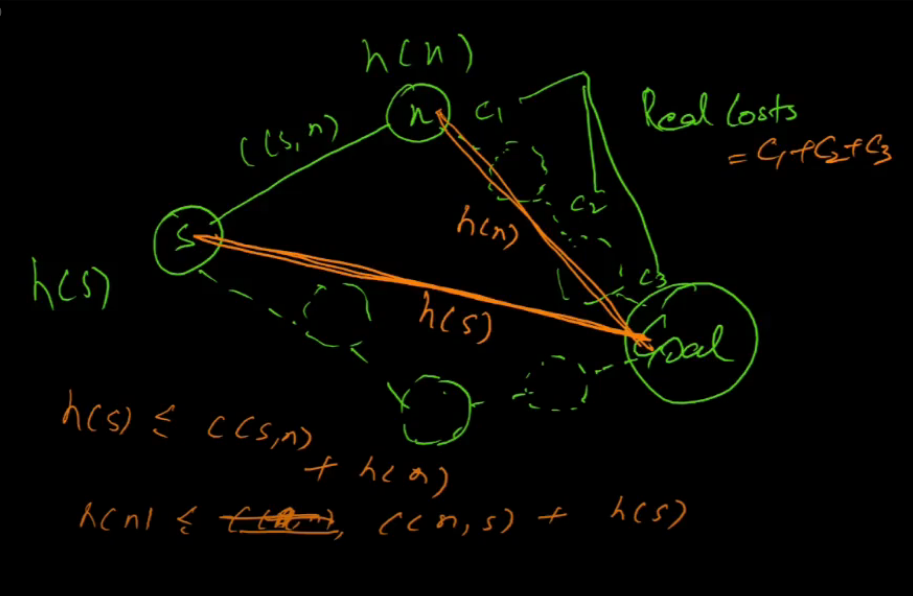 h(n)
n
C1
Real Costs
= C1+C2+C3
C(s,n)
C2
h(n)
S
C3
h(s)
h(s)
Goal
h(s) ≤ C(s,n)
+ h(n)
h(n) ≤ C(n,s) + h(s)